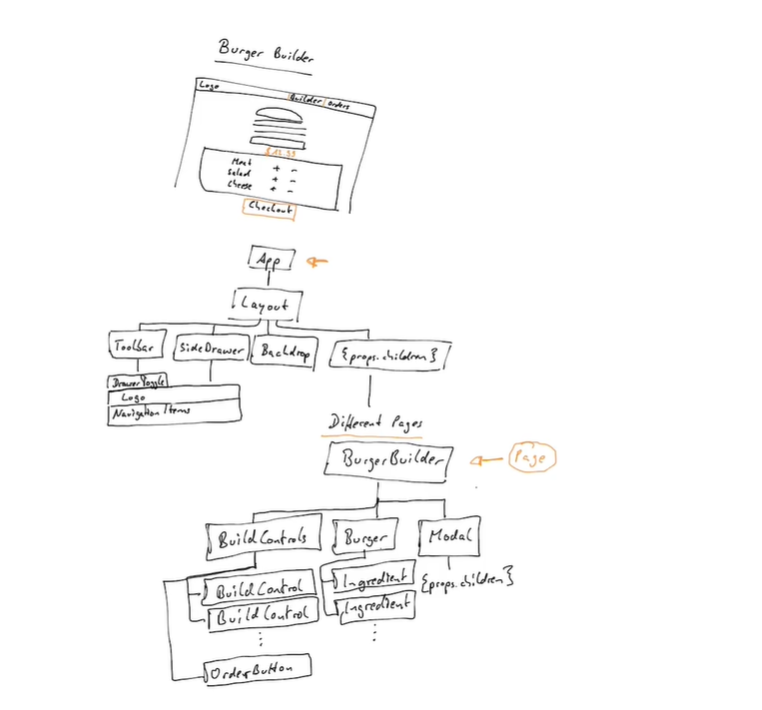 Burger Builder
Logo
Builder Orders
Meat + -
Salad + -
Cheese + -
Checkout
App
Layout
Toolbar SideDrawer Backdrop {props.children}
DrawerToggle
Logo
Navigation Items
Different Pages
BurgerBuilder Page
BuildControls Burger Modal
BuildControl Ingredient {props.children}
BuildControl Ingredient
OrderButton